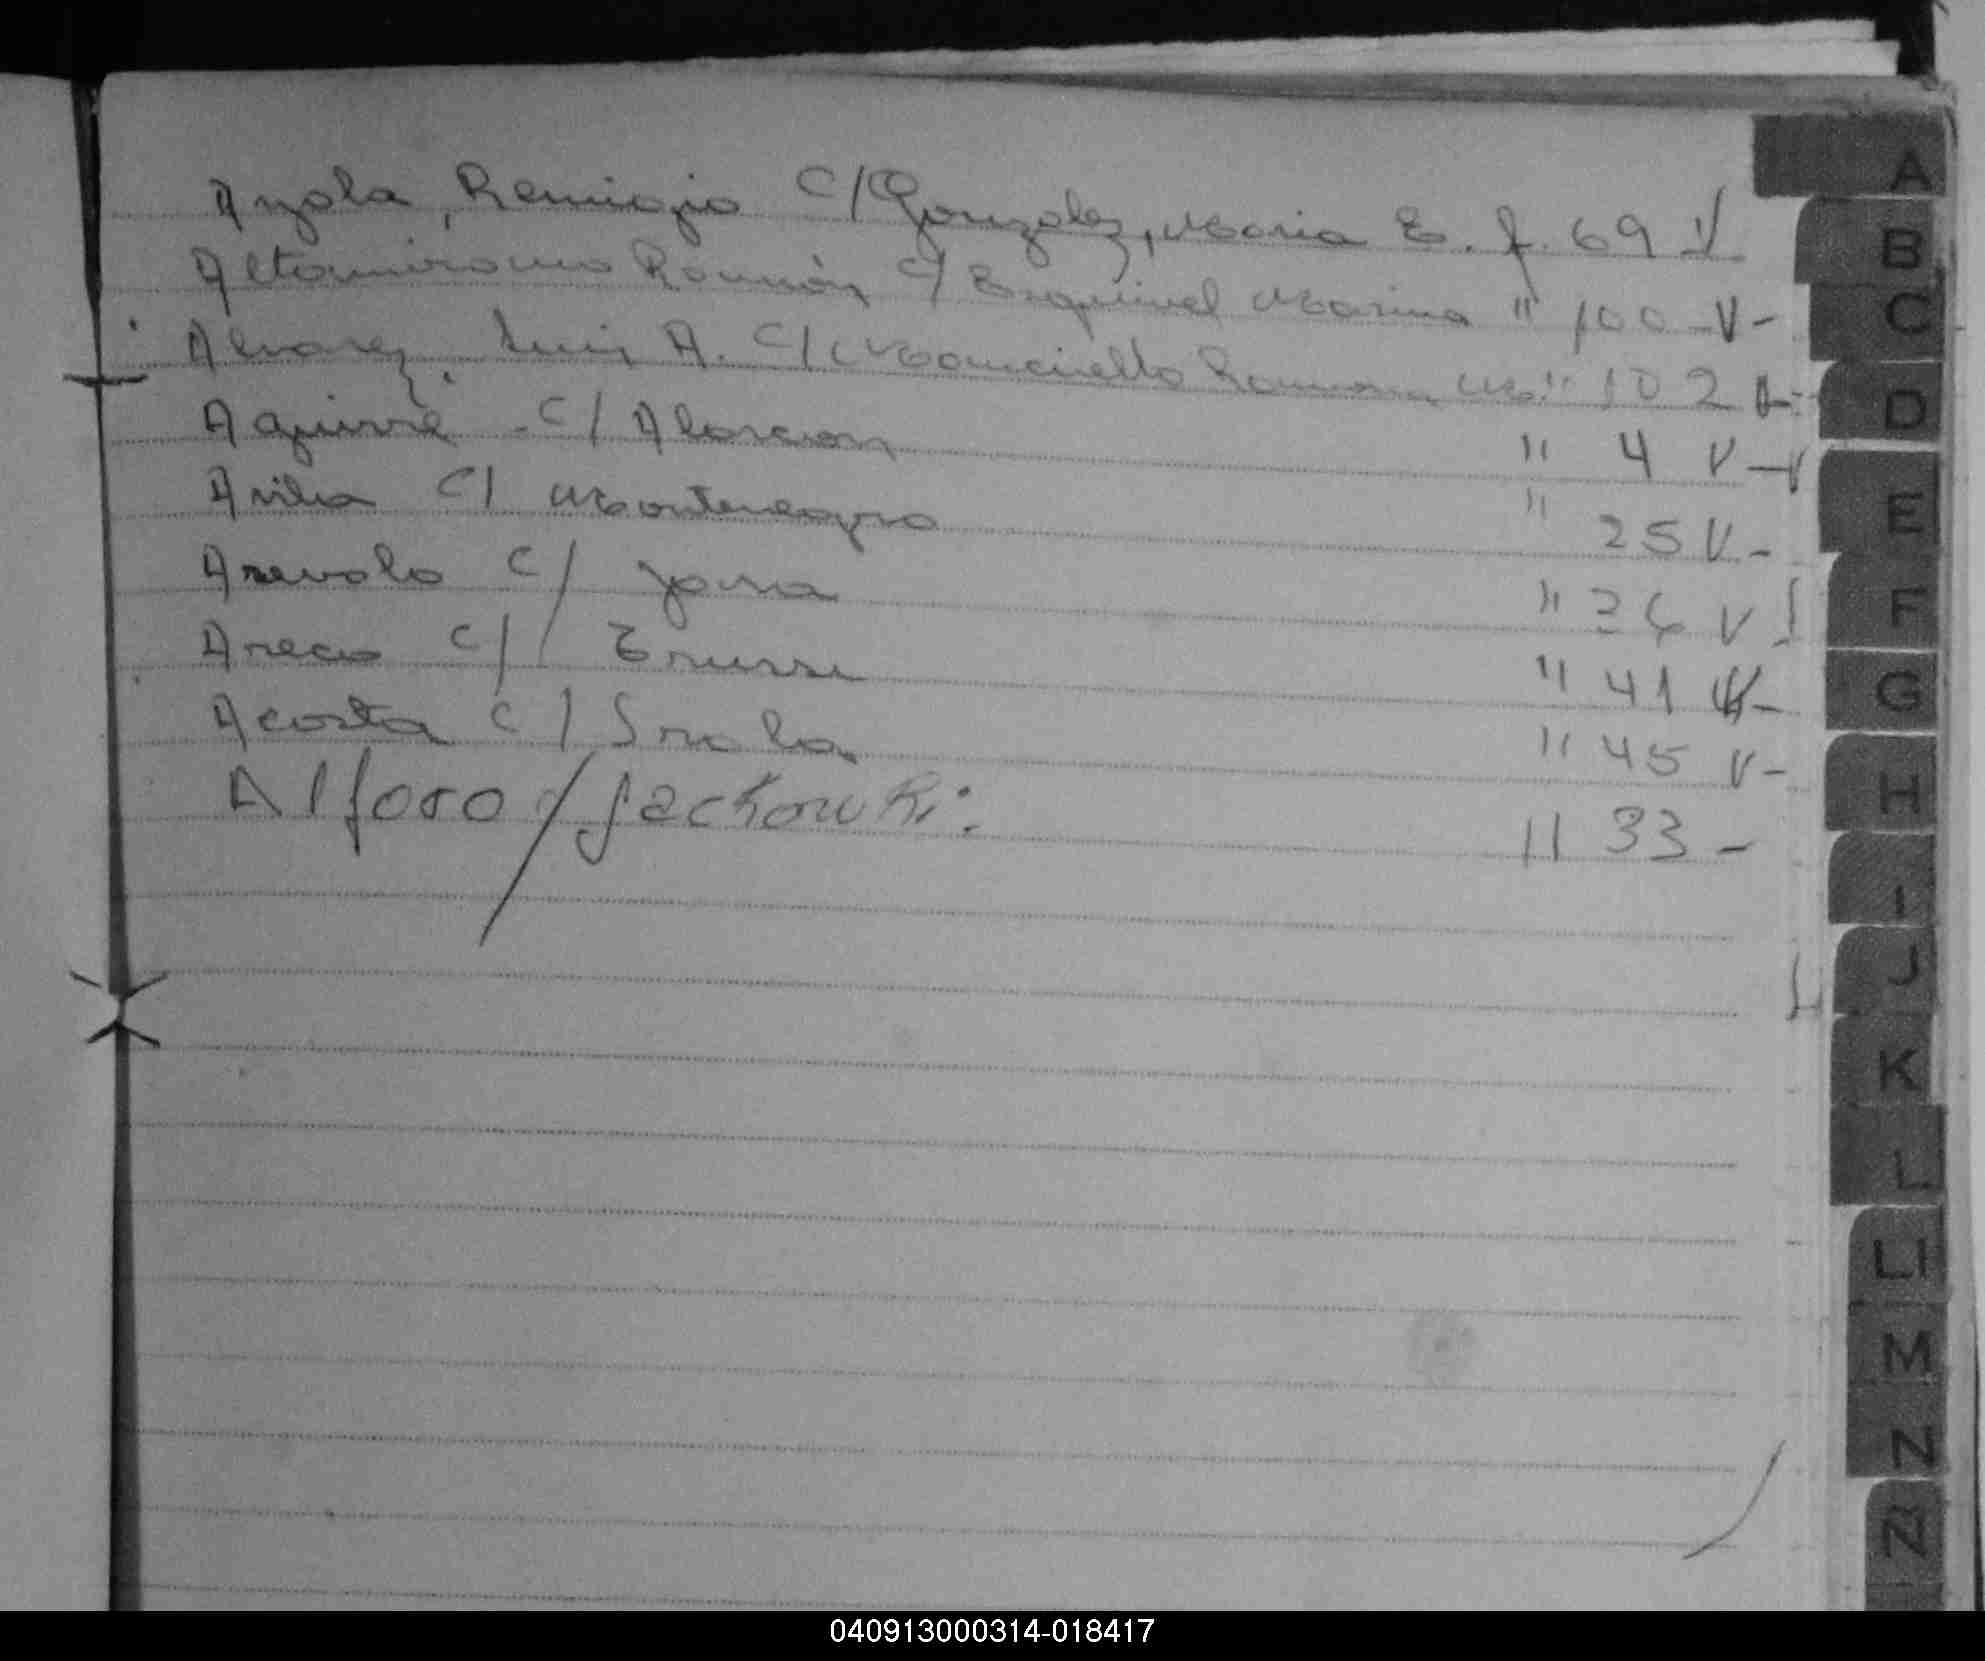 Ayala, Remigio C/ Gonzalez, Maria E. f. 69 V
Altamirano Ramón C/ Esquivel Marina " 100 V-
Alvarez Luis A. C/ Manciello Ramona M. " 102
Aguirre C/ Alarcon " 4 V-V
Avila C/ Montenegro " 25 V-
Arevalo C/ Jara " 26 V
Areco C/ " 41 V-
Acosta C/ " 45 V-
Alforo / Jachowki. " 33 -
A
B
C
D
E
F
G
H
I
J
K
L
Ll
M
N
Ñ
040913000314-018417